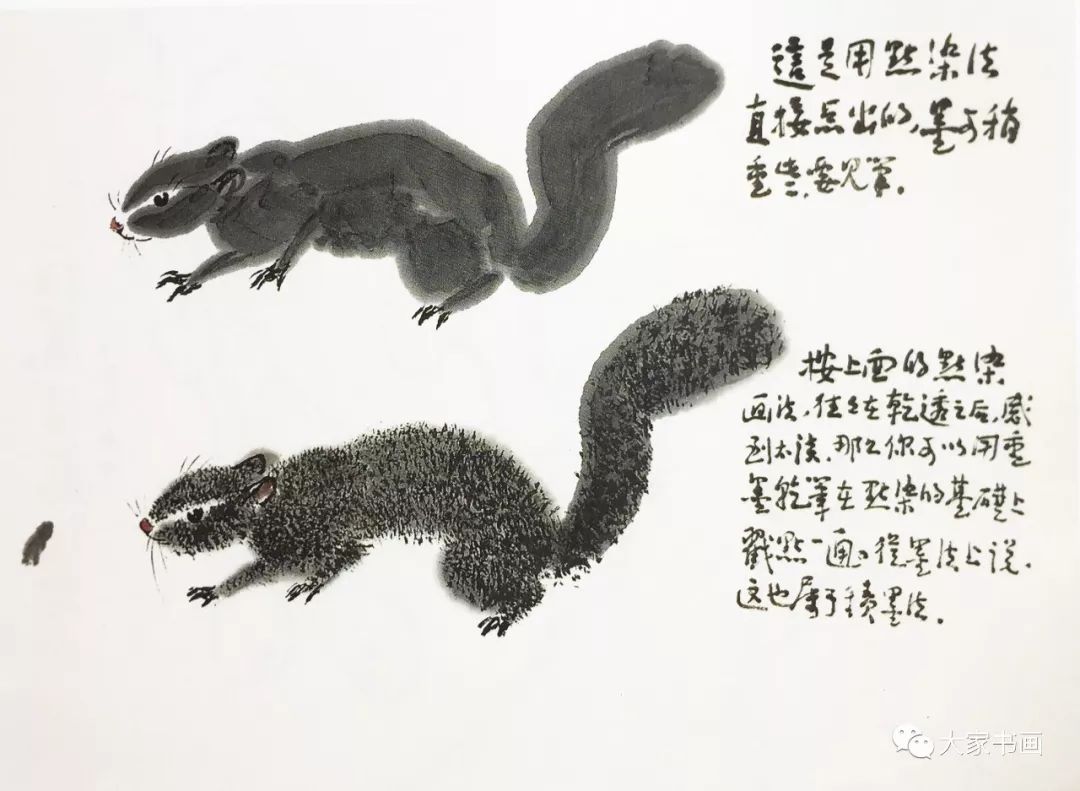 這是用點染法
直接点出的,墨可稍
重些,要见筆。
按上面的點染
画法,往往在乾透之后,感
到太淡,那么你可以用重
墨乾筆在點染的基礎上
戳點一遍。從墨法上说,
这也属于積墨法。
大家书画